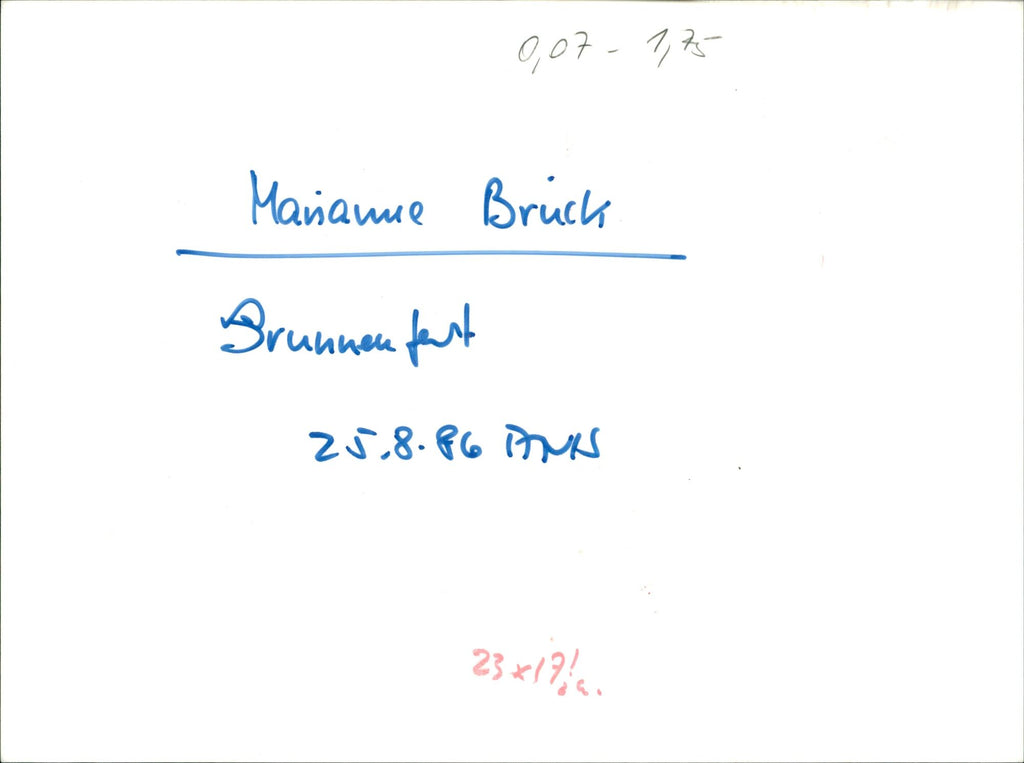 0,07 - 1,75
Marianne Brück
Brunnenfest
25.8.86
23x17!